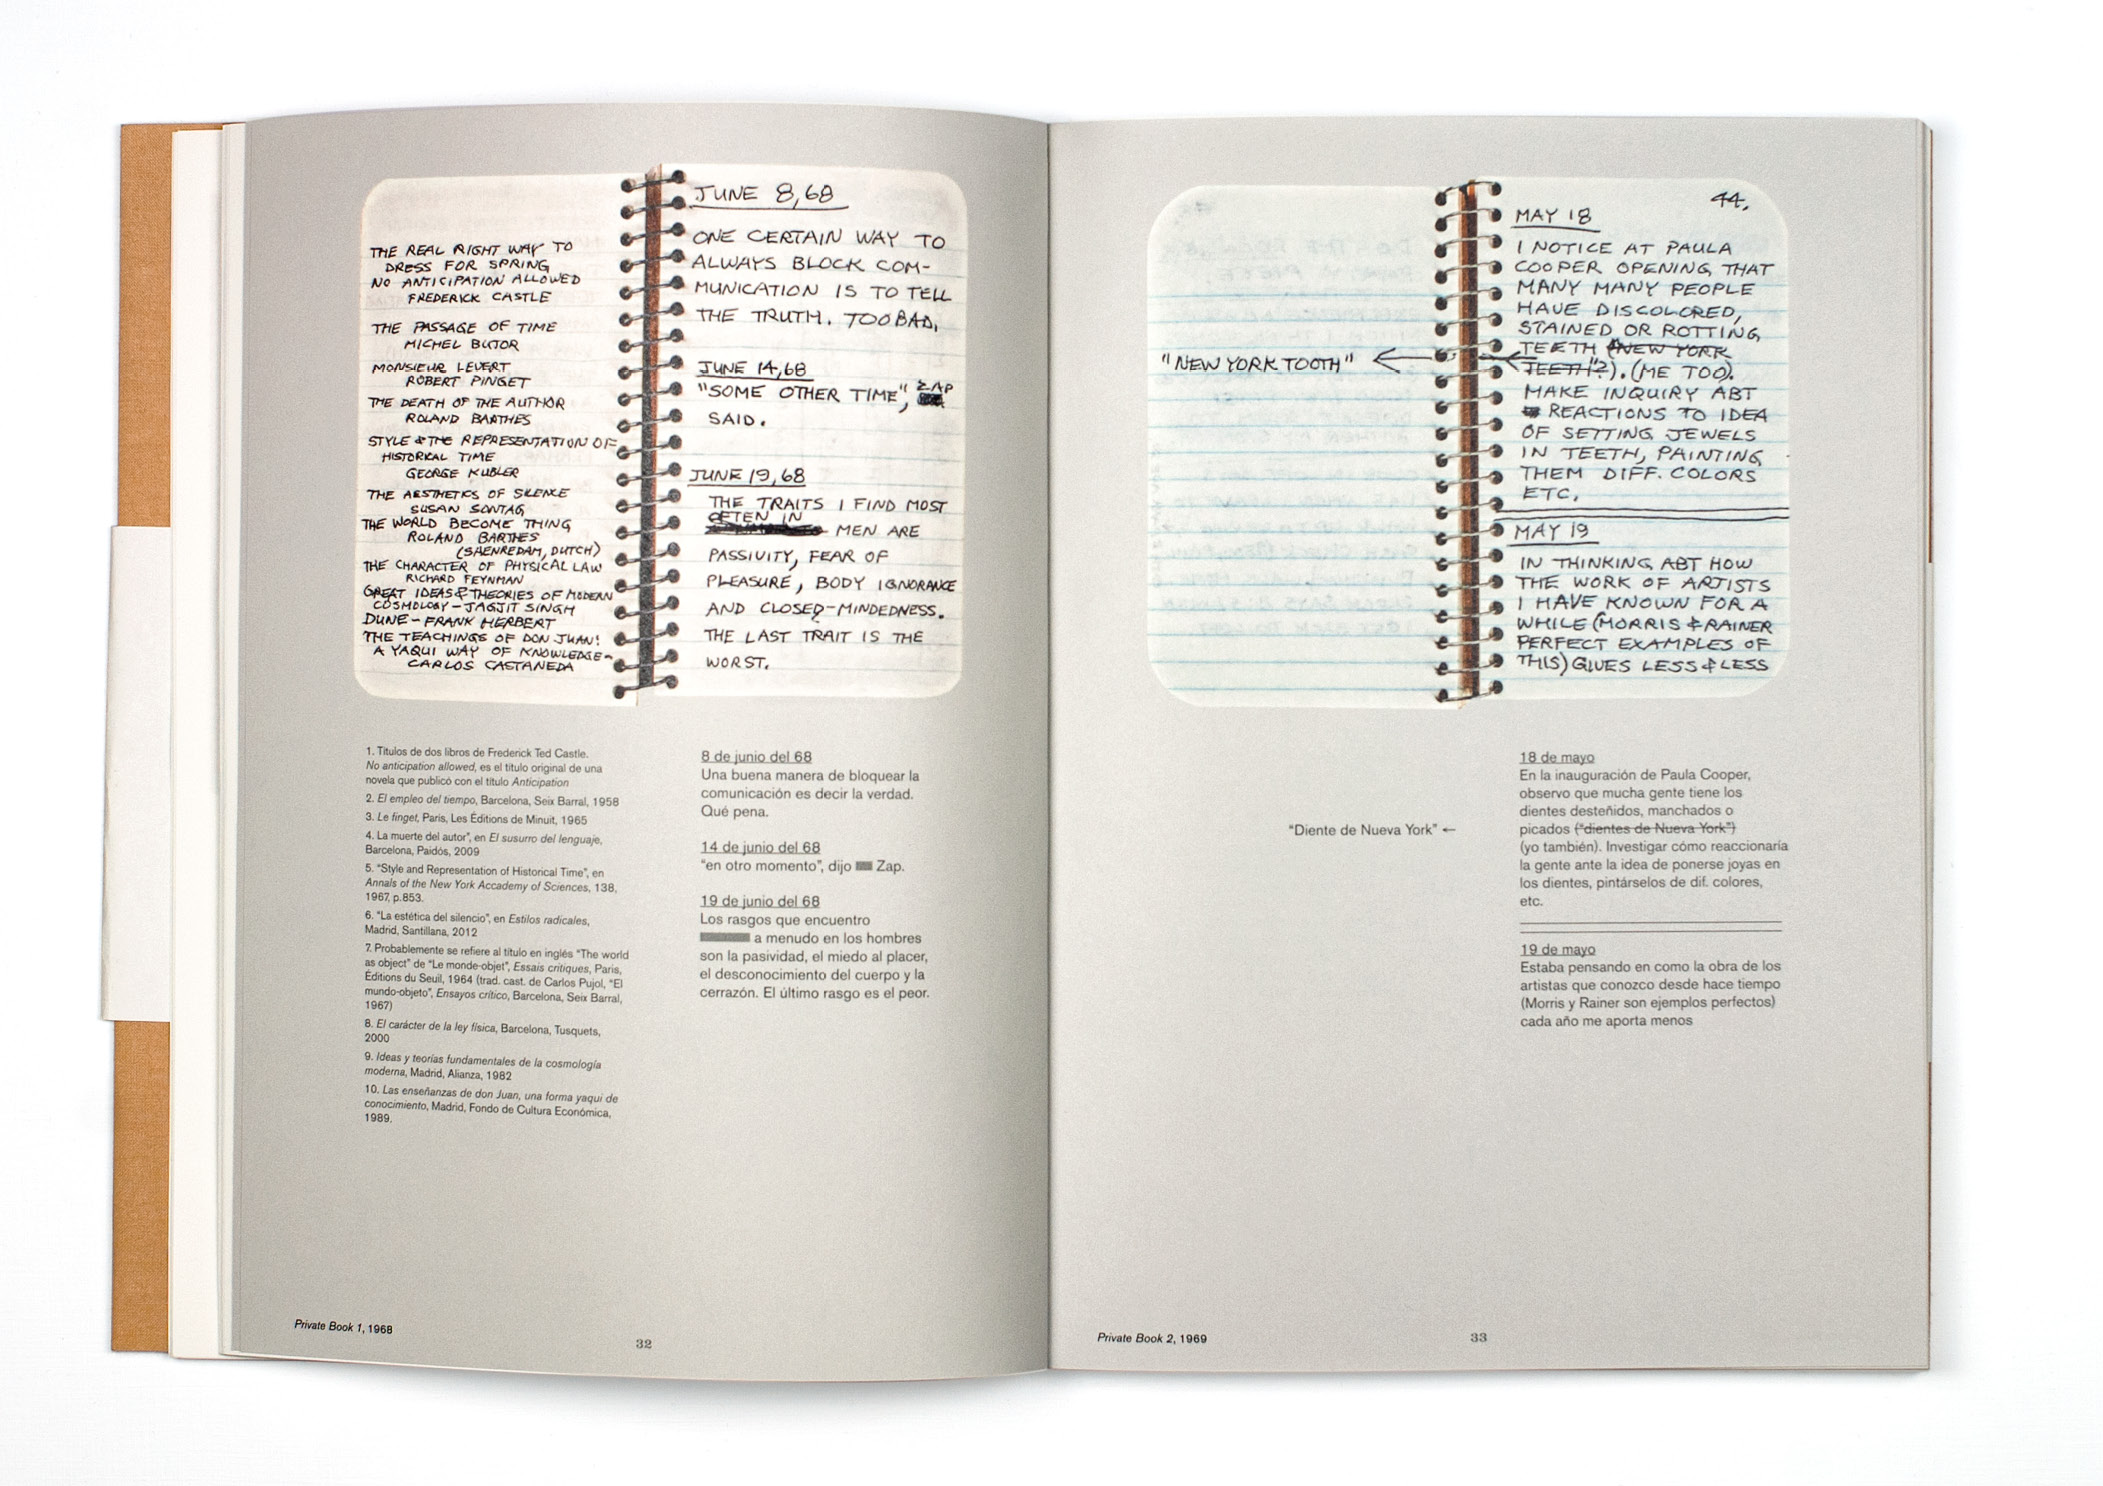 THE REAL RIGHT WAY TO
DRESS FOR SPRING
NO ANTICIPATION ALLOWED
FREDERICK CASTLE
THE PASSAGE OF TIME
MICHEL BUTOR
MONSIEUR LEVERT
ROBERT PINGET
THE DEATH OF THE AUTHOR
ROLAND BARTHES
STYLE & THE REPRESENTATION OF
HISTORICAL TIME
GEORGE KUBLER
THE AESTHETICS OF SILENCE
SUSAN SONTAG
THE WORLD BECOME THING
ROLAND BARTHES
(SAENREDAM, DUTCH)
THE CHARACTER OF PHYSICAL LAW
RICHARD FEYNMAN
GREAT IDEAS & THEORIES OF MODERN
COSMOLOGY - JAGJIT SINGH
DUNE - FRANK HERBERT
THE TEACHINGS OF DON JUAN:
A YAQUI WAY OF KNOWLEDGE -
CARLOS CASTANEDA
JUNE 8, 68
ONE CERTAIN WAY TO
ALWAYS BLOCK COM-
MUNICATION IS TO TELL
THE TRUTH. TOO BAD.
JUNE 14, 68
"SOME OTHER TIME", ZAP
SAID.
JUNE 19, 68
THE TRAITS I FIND MOST
OFTEN IN
MEN ARE
PASSIVITY, FEAR OF
PLEASURE, BODY IGNORANCE
AND CLOSED-MINDEDNESS.
THE LAST TRAIT IS THE
WORST.
1. Títulos de dos libros de Frederick Ted Castle.
No anticipation allowed, es el título original de una
novela que publicó con el título Anticipation
2. El empleo del tiempo, Barcelona, Seix Barral, 1958
3. Le finget, Paris, Les Éditions de Minuit, 1965
4. La muerte del autor", en El susurro del lenguaje,
Barcelona, Paidós, 2009
5. "Style and Representation of Historical Time", en
Annals of the New York Accademy of Sciences, 138,
1967, p.853.
6. "La estética del silencio", en Estilos radicales,
Madrid, Santillana, 2012
7. Probablemente se refiere al título en inglés "The world
as object" de "Le monde-objet", Essais critiques, Paris,
Éditions du Seuil, 1964 (trad. cast. de Carlos Pujol, "El
mundo-objeto", Ensayos crítico, Barcelona, Seix Barral,
1967)
8. El carácter de la ley física, Barcelona, Tusquets,
2000
9. Ideas y teorías fundamentales de la cosmología
moderna, Madrid, Alianza, 1982
10. Las enseñanzas de don Juan, una forma yaqui de
conocimiento, Madrid, Fondo de Cultura Económica,
1989.
8 de junio del 68
Una buena manera de bloquear la
comunicación es decir la verdad.
Qué pena.
14 de junio del 68
"en otro momento", dijo Zap.
19 de junio del 68
Los rasgos que encuentro
a menudo en los hombres
son la pasividad, el miedo al placer,
el desconocimiento del cuerpo y la
cerrazón. El último rasgo es el peor.
Private Book 1, 1968
32
"NEW YORK TOOTH" ←
44.
MAY 18
I NOTICE AT PAULA
COOPER OPENING THAT
MANY MANY PEOPLE
HAVE DISCOLORED,
STAINED OR ROTTING
TEETH ("NEW YORK
TEETH"?). (ME TOO).
MAKE INQUIRY ABT
REACTIONS TO IDEA
OF SETTING JEWELS
IN TEETH, PAINTING
THEM DIFF. COLORS
ETC.
MAY 19
IN THINKING ABT HOW
THE WORK OF ARTISTS
I HAVE KNOWN FOR A
WHILE (MORRIS & RAINER
PERFECT EXAMPLES OF
THIS) GIVES LESS & LESS
"Diente de Nueva York" ←
18 de mayo
En la inauguración de Paula Cooper,
observo que mucha gente tiene los
dientes desteñidos, manchados o
picados ("dientes de Nueva York")
(yo también). Investigar cómo reaccionaría
la gente ante la idea de ponerse joyas en
los dientes, pintárselos de dif. colores,
etc.
19 de mayo
Estaba pensando en como la obra de los
artistas que conozco desde hace tiempo
(Morris y Rainer son ejemplos perfectos)
cada año me aporta menos
Private Book 2, 1969
33